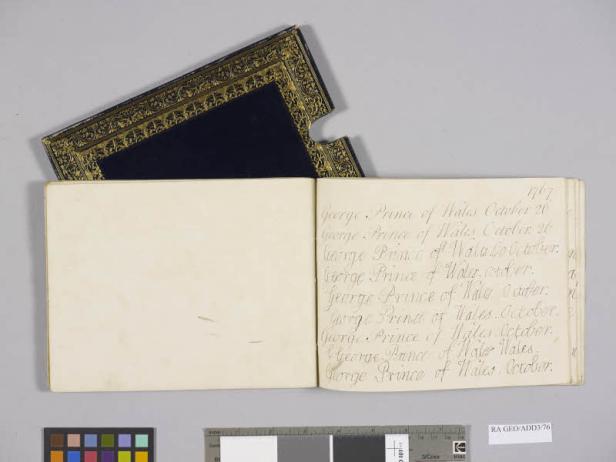 1767
George Prince of Wales October 26
George Prince of Wales October 26
George Prince of Wales October.
George Prince of Wales. October.
George Prince of Wales October.
George Prince of Wales. October.
George Prince of Wales October.
George Prince of Wales Wales
George Prince of Wales. October.
RA GEO/ADD3/76
Kodak